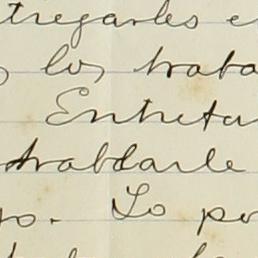 tregarles e
los traba
Entreta
trabdarle
go. Lo po